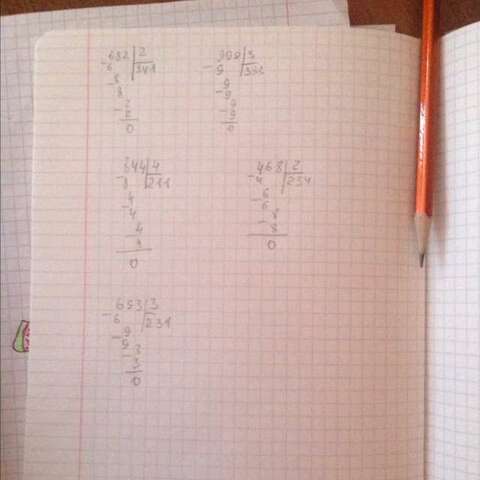 682 2
- 6 341
8
- 8
2
- 2
0
999 3
- 9 333
9
- 9
9
- 9
0
844 4
- 8 211
4
- 4
4
4
0
468 2
- 4 234
6
- 6
8
- 8
0
693 3
- 6 231
9
- 9
- 3
3
0